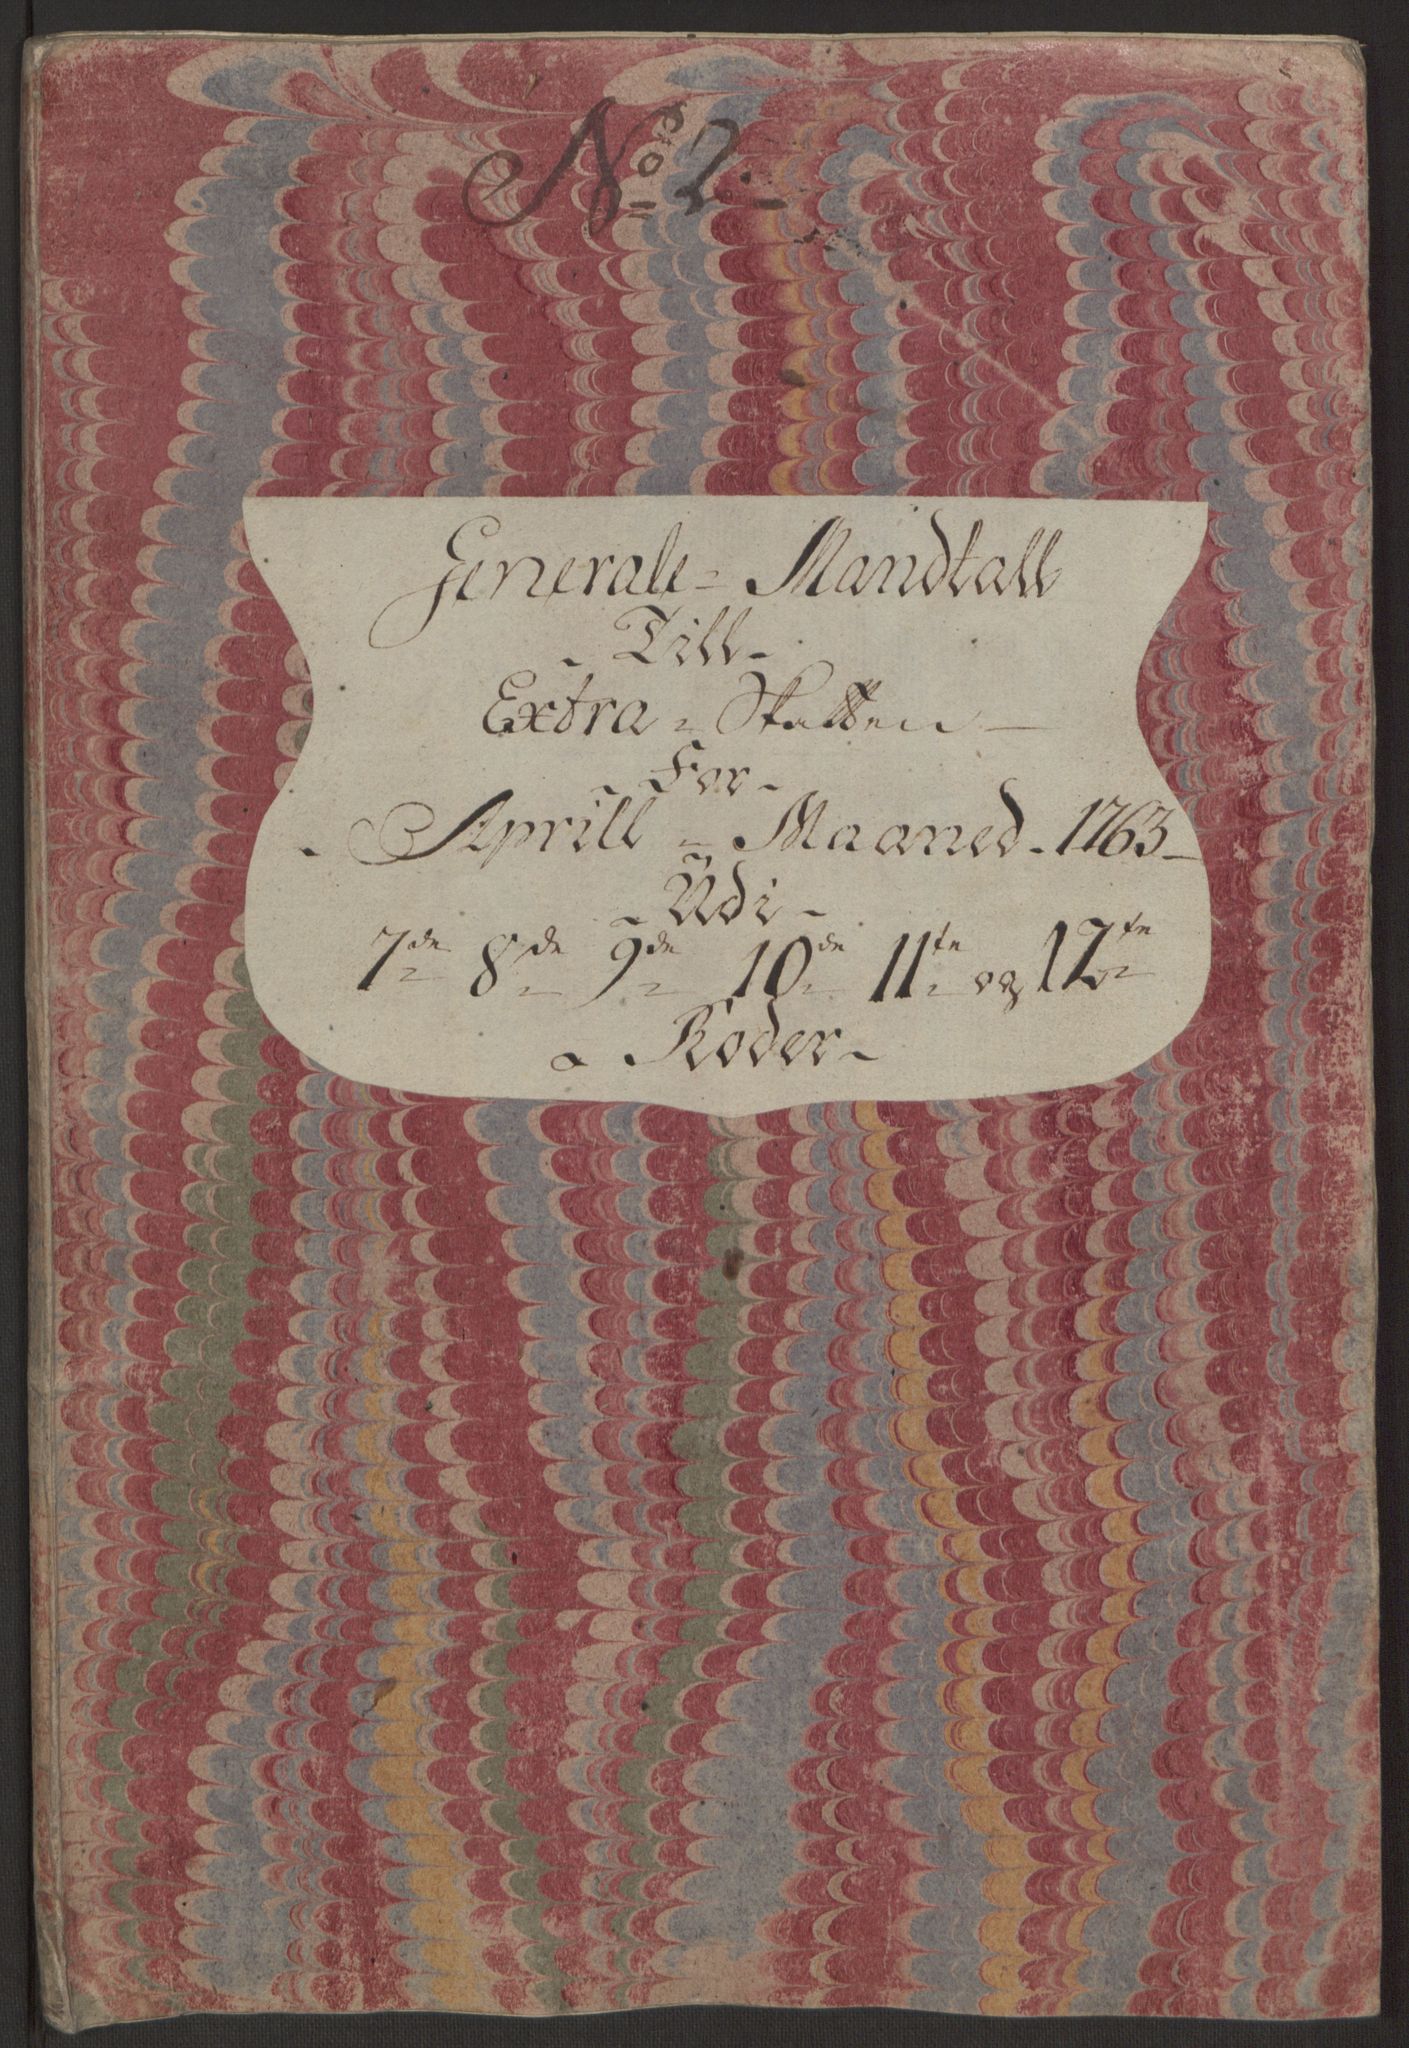 No 2
Generale - Mandtall
Till
Extra - Skatten
For
Aprill - Maaned 1763
Udi
7de 8de 9de 10de 11te og 12te
Roder